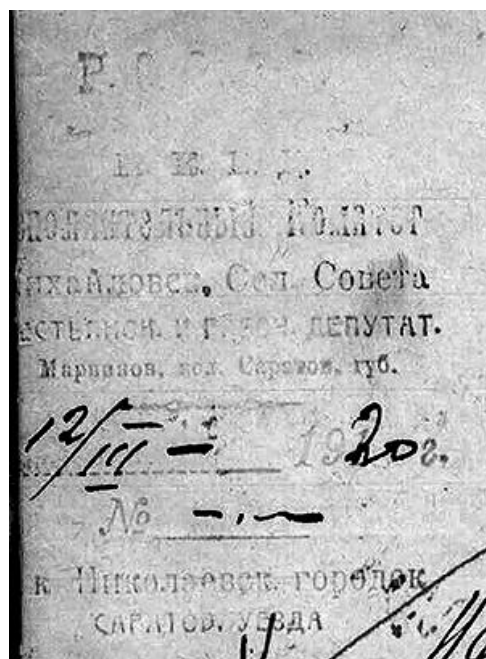 Р. С.
Н. К. В. Д.
сполнительный Комитет
ихайловск. Сел. Совета
рестьянск. и рабоч. депутат.
Мариинов. вол. Саратов. губ.
12/III – 1920 г.
№ –.–
к Николаевск. городок
Саратов. уезда